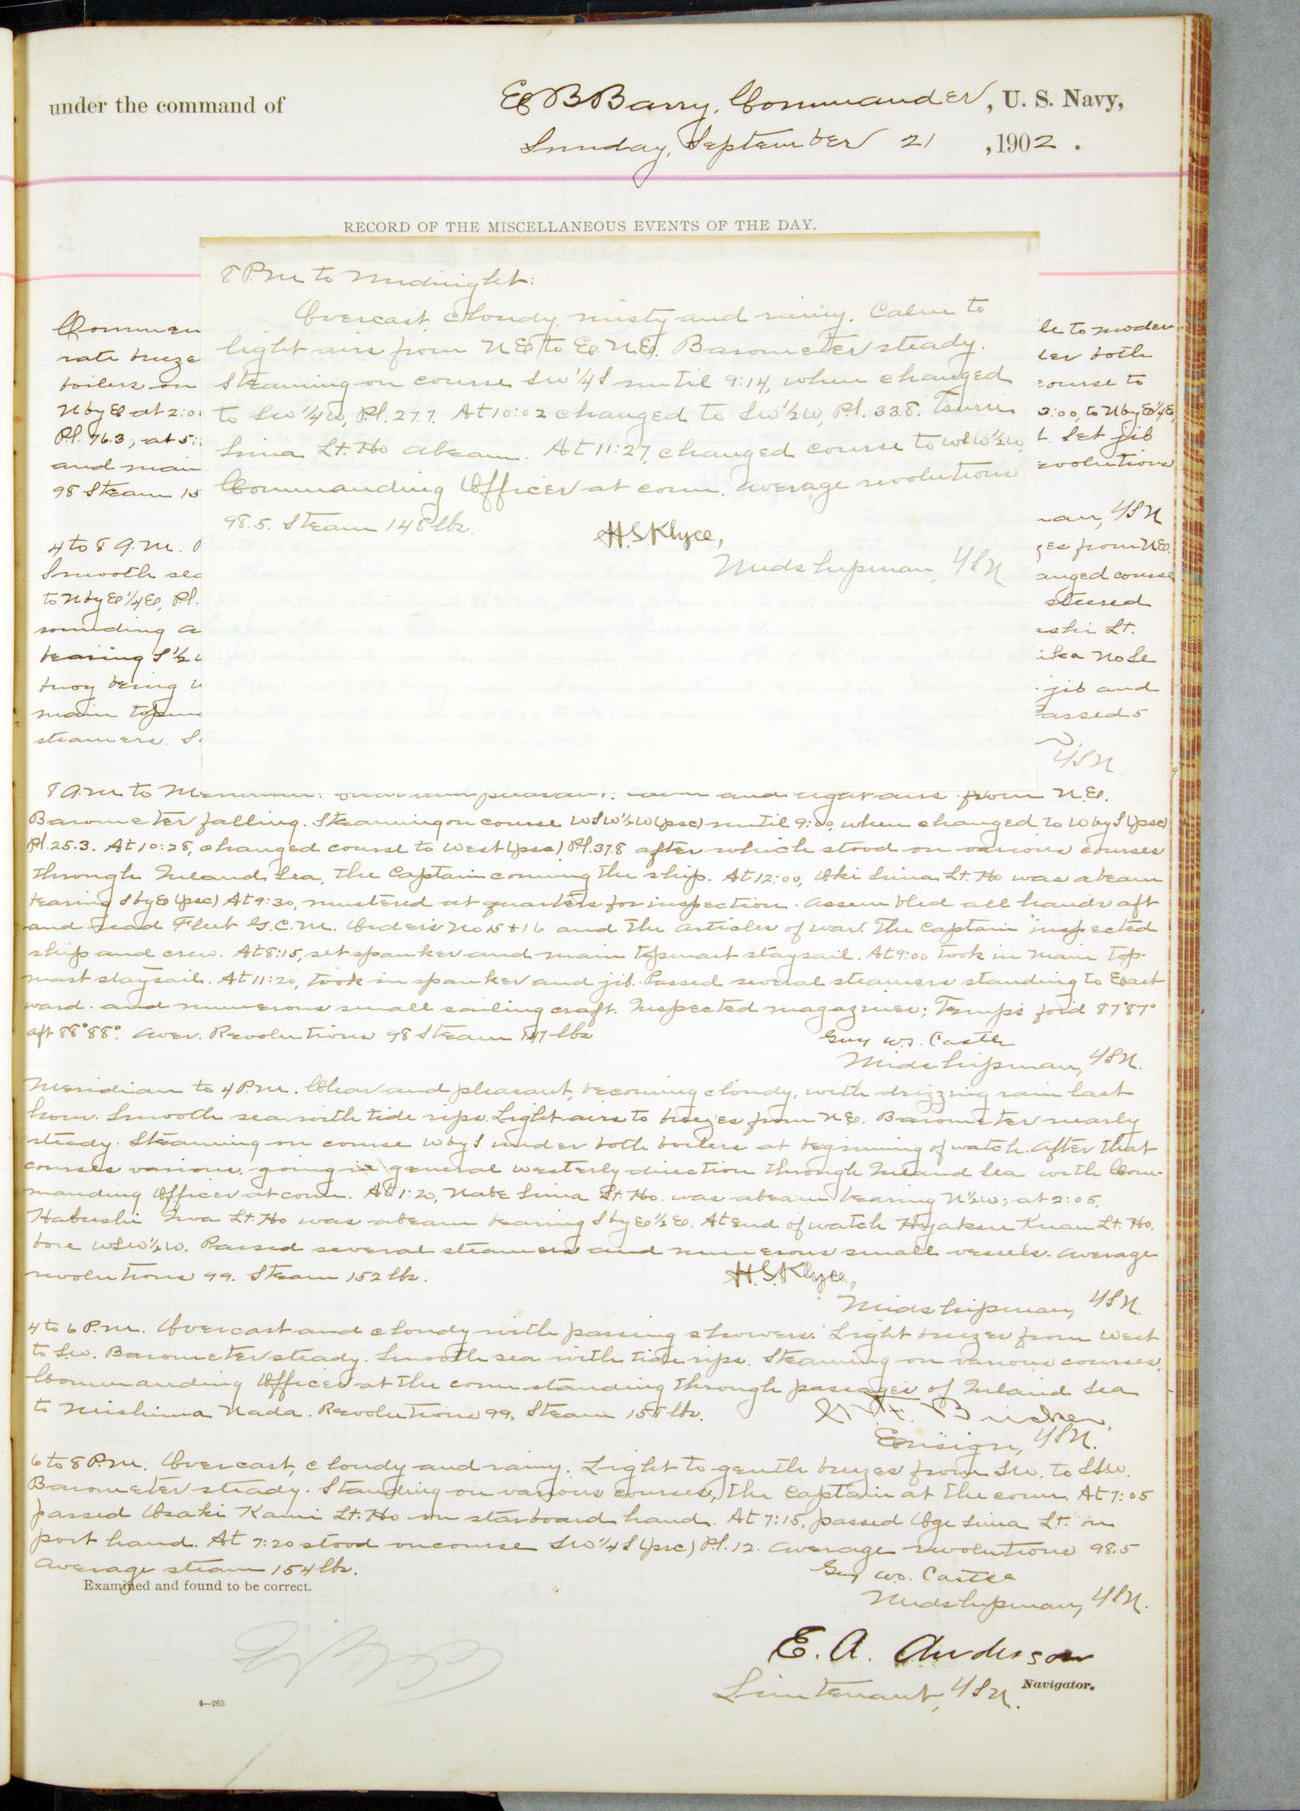 under the command of E B Barry, Commander, U. S. Navy,
Sunday, September 21, 1902.
RECORD OF THE MISCELLANEOUS EVENTS OF THE DAY.
8 P.M. to Midnight:
Overcast, cloudy, misty and rainy. Calm to
light airs from NE to E.N.E. Barometer steady.
Steaming on course SW 1/4 S until 9:14, when changed
to SW 1/4 W, P.l. 27.7. At 10:02 changed to SW 1/2 W, P.l. 33.8.
Sima Lt. Ho abeam. At 11:27, changed course to WSW 1/2 W,
Commanding Officer at conn. Average revolutions
98.5. Steam 148 lbs.
H.S. Klyce,
Midshipman, USN
Commen
rate breeze
boilers on
N by E at 2:0
P.l. 76.3; at 5:
and main
98 Steam 15
le to moder
der both
course to
3:00, to N by E 1/4 E,
t. Set jib
evolutions
man, USN
4 to 8 A.M.
Smooth sea
to N by E 1/4 E, P.l.
sounding a
bearing S 1/2 W
buoy being
main topma
steamers. S.
zes from NE.
anged course
steered
ashi Lt.
No Se
jib and
Passed 5
USN
8 A.M. to Meridian: Clear and pleasant. Calm and light airs from N.E.
Barometer falling. Steaming on course WSW 1/2 W (psc) until 9:00, when changed to W by S (psc)
P.l. 25.3. At 10:28, changed course to West (psc) P.l. 37.8 after which stood on various courses
through Inland Sea, the Captain conning the ship. At 12:00, Oki Sima Lt. Ho was abeam
bearing S by E (psc) At 9:30, mustered at quarters for inspection. Assembled all hands aft
and read Fleet G.C.M. Orders No 15 & 16 and the articles of war. The Captain inspected
ship and crew. At 8:15, set spanker and main topmast staysail. At 9:00 took in main top-
mast staysail. At 11:20, took in spanker and jib. Passed several steamers standing to East
ward. and numerous small sailing craft. Inspected magazines: Temps for'd 87° 87°
aft 88° 88°. Aver. Revolutions 98 Steam 147 lbs
Guy W.S. Castle
Midshipman, USN.
Meridian to 4 P.M. Clear and pleasant, becoming cloudy, with drizzing rain last
hour. Smooth sea with tide rips. Light airs to breezes from NE. Barometer nearly
steady. Steaming on course W by S under both boilers at beginning of watch. After that
courses various, going in general westerly direction through Inland Sea with Com-
manding Officer at conn. At 1:20, Nabe Sima Lt. Ho. was abeam bearing N 1/2 W; at 2:05,
Habushi Iwa Lt. Ho was abeam bearing S by E 1/2 E. At end of watch Hyakken Kuan Lt. Ho.
bore WSW 1/2 W. Passed several steamers and numerous small vessels. Average
revolutions 99. Steam 152 lbs.
H.S. Klyce,
Midshipman, USN.
4 to 6 P.M. Overcast and cloudy with passing showers. Light breezes from West
to S.W. Barometer steady. Smooth sea with tide rips. Steaming on various courses,
Commanding Officer at the conn standing through passages of Inland Sea
to Mishima Nada. Revolutions 99, Steam 158 lbs.
Ensign, USN.
6 to 8 P.M. Overcast, cloudy and rainy. Light to gentle breezes from SW. to SSW.
Barometer steady. Standing on various courses, the Captain at the conn. At 7:05
passed Osaki Kami Lt. Ho on starboard hand. At 7:15, passed Oge Sima Lt. on
port hand. At 7:20 stood on course SW 1/4 S (psc) P.l. 12. Average revolutions 98.5
Average steam 154 lbs.
Guy W.S. Castle
Midshipman, USN.
Examined and found to be correct.
E. A. Anderson
Lieutenant, USN. Navigator.
4—263